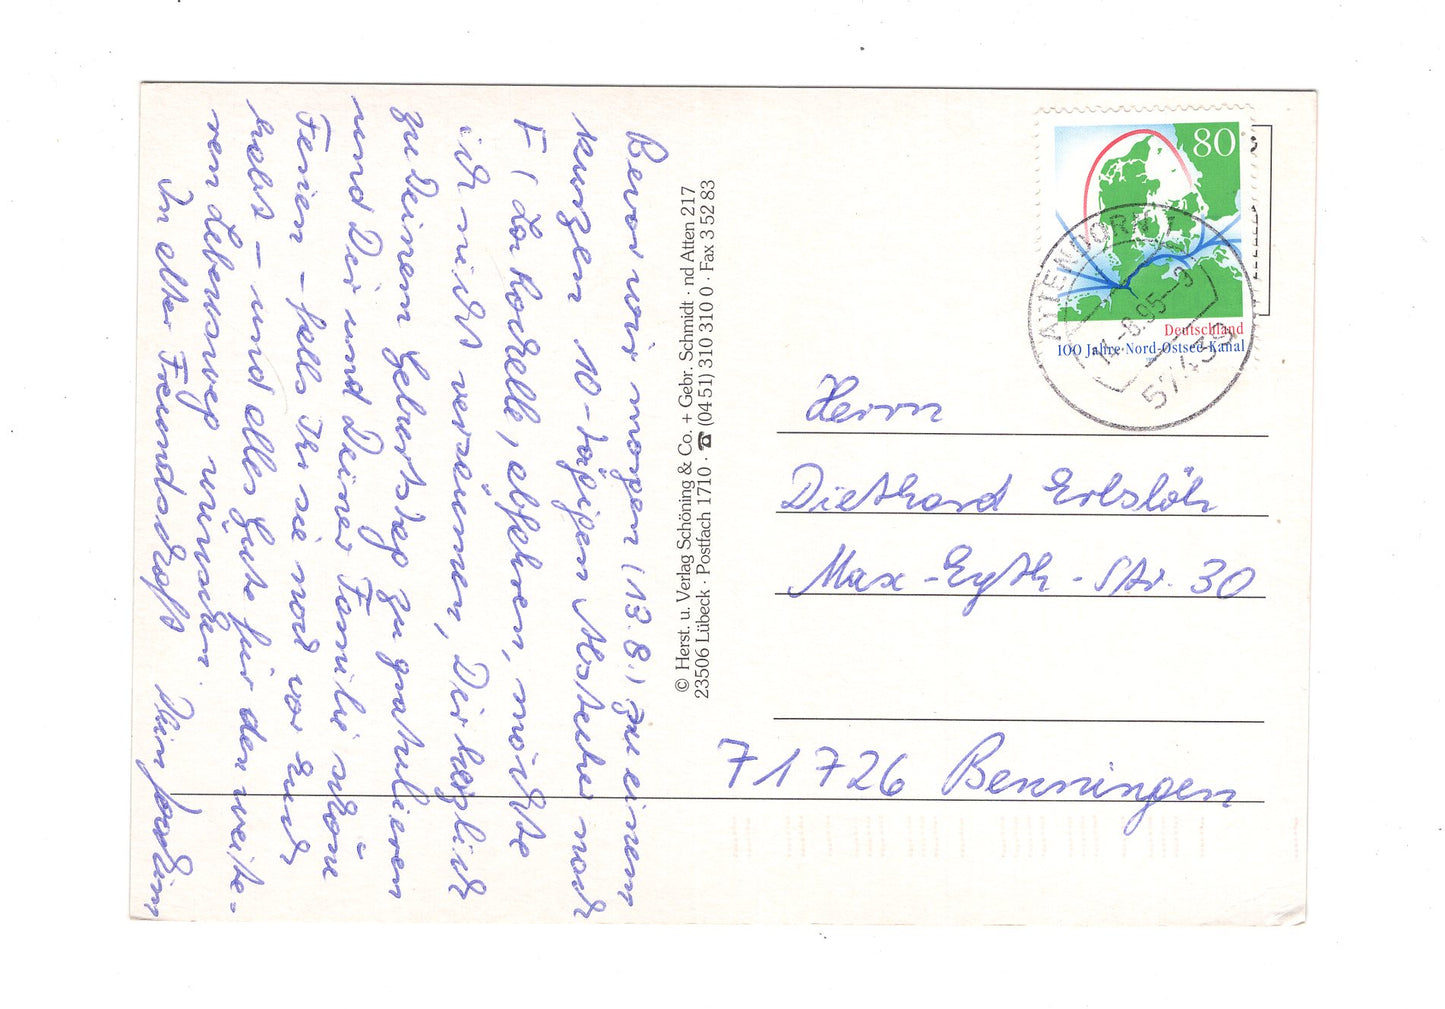 Bevor wir morgen (13.8.) zu einem
kurzen 10-tägigen Abstecher nach
F (La Rochelle, abfahren, möchte
ich nicht versäumen, Dir herzlich
zu Deinem Geburtstag zu gratulieren
und Dir und Deiner Familie schöne
Ferien – falls Ihr sie noch vor Euch
habt – und alles Gute für den weite-
ren Lebensweg wünschen.
In alter Freundschaft Dein Joachim
© Herst. u. Verlag Schöning & Co. + Gebr. Schmidt · nd Atten 217
23506 Lübeck · Postfach 1710 · ☎ (04 51) 310 310 0 · Fax 3 52 83
80
Deutschland
100 Jahre Nord-Ostsee-Kanal
ATTENDORN 1
8.95
57439
Herrn
Diethard Erbslöh
Max-Eyth-Str. 30
71726 Benningen